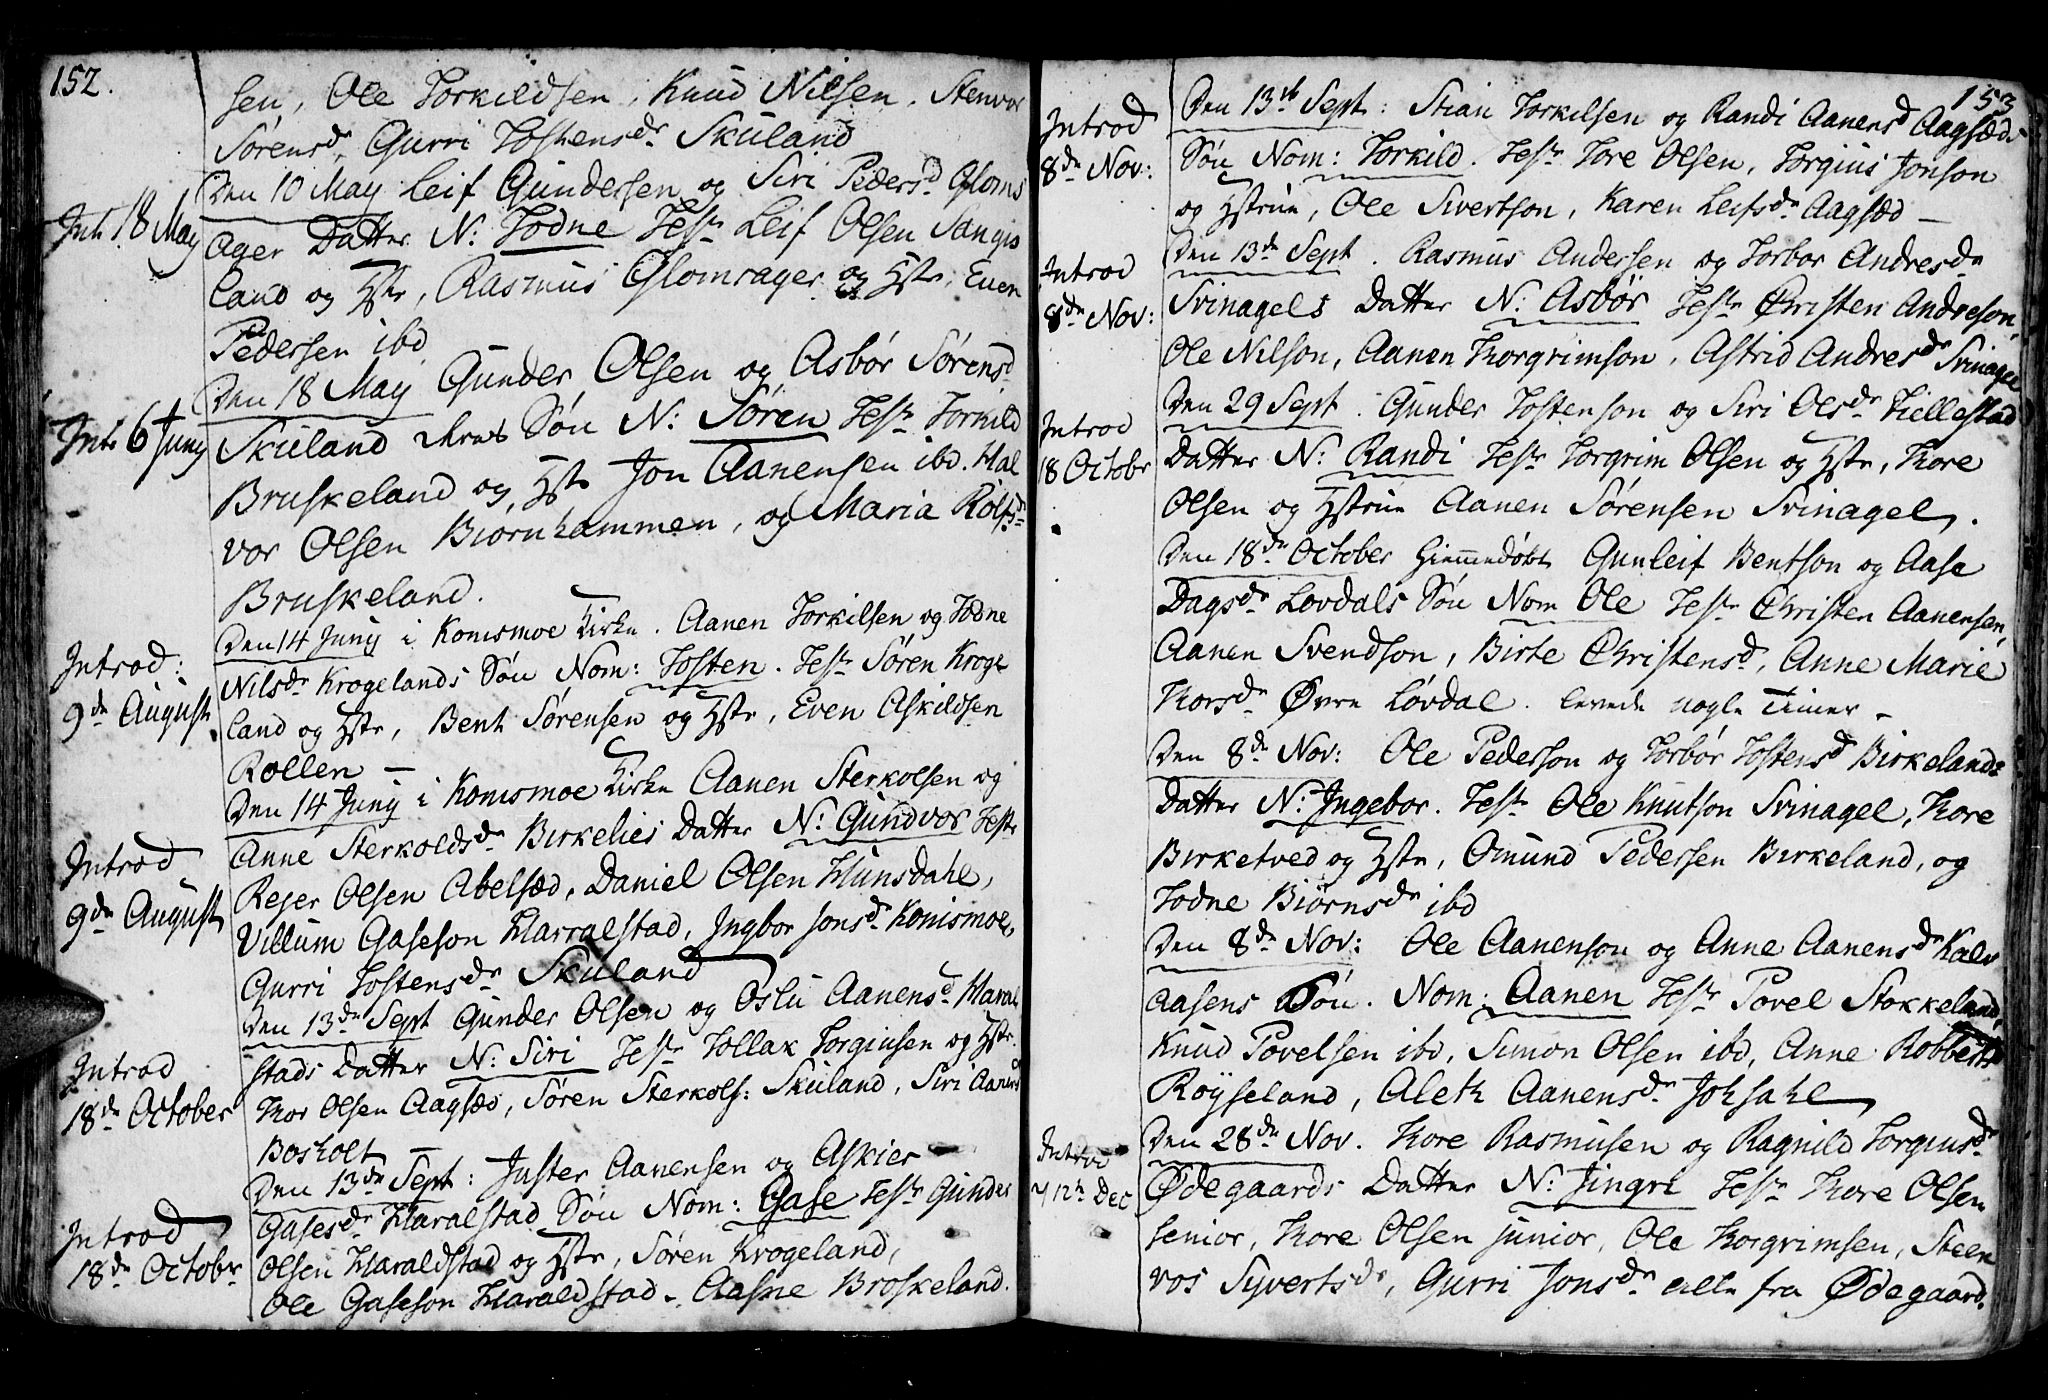 152.
sen, Ole Torkildsen, Knud Nilsen, Stenvor
Sørensdr, Gurri Tostensdr Skuland
Den 10 May Leif Gundersen og Siri Pedersd Gloms
Int: 18 May
Ager Datter N: Todne Testr Leif Olsen Sangis
land og Hstr, Rasmus Glomsager og Hstr, Even
Pedersen ibd
Den 18 May Gunder Olsen og Asbør Sørensd
Int: 6t Juny
Skuland deres Søn N: Søren Testr Torkild
Bruskeland og Hstr Jon Aanensen ibd. Hal
vor Olsen Biørnhammen, og Maria Rolfsdr
Bruskeland.
Den 14 Juny i Konismoe Kirke. Aanen Torkilsen og Todne
Introd:
9de August
Nilsdr Krogelands Søn Nom: Tosten. Testr Søren Kroge
land og Hstr, Bent Sørensen og Hstr, Even Askildsen
Rollen –
Den 14 Juny i Konismoe Kirke Aanen Sterkolsen og
Introd
9de August
Anne Sterkoldsdr Birkelies Datter N: Gundvor Testr
Rejer Olsen Abelsæd, Daniel Olsen Hunsdahl,
Villum Gaseson Harralstad, Ingbor Jonsdr Konismoe,
Gurri Tostensdr Skuland
Den 13de Sept Gunder Olsen og Oslu Aanensd Haral
Introd
18de October
stads Datter N: Siri Testr Tollak Torginsen og Hstr.
Thor Olsen Aagsæd, Søren Sterkols: Skuland, Siri Aanensd
Bosholt –
Den 13de Sept: Juster Aanensen og Askier
Introd
18de Octobr
Gasesdr Haralstad Søn Nom: Gase Testr Gunder
Olsen Haraldstad og Hstr, Søren Krogeland,
Ole Gaseson Haraldstad – Aasne Broskeland.
153
Introd
8de Nov:
Den 13de Sept: Stian Torkilsen og Randi Aanensd Aagsæds
Søn Nom: Torkild. Testr Tore Olsen, Torgius Jonson
og Hstrue, Ole Sivertson, Karen Leifsdr Aagsæd –
Introd
8de Nov:
Den 13de Sept. Rasmus Andersen og Torbor Andresdr
Svinagels Datter N: Asbør Testr Christen Andreson,
Ole Nilson, Aanen Thorgrimson, Astrid Andresdr Svinagel
Introd
18 Octobr
Den 29 Sept. Gunder Tostenson og Siri Olsdr Tiellestad
Datter N: Randi Testr Torgrim Olsen og Hstr, Thore
Olsen og Hstrue Aanen Sørensen Svinagel.
Den 18de October Hiemmedøbt Gunleif Bentson og Aase
Dagsdr Løvdals Søn Nom Ole Testr Christen Aanensen,
Aanen Svendson, Birte Christensd, Anne Marie
Thorsdr Øvre Løvdal. levede nogle Timer –
Den 8de Nov: Ole Pederson og Torbør Tostensd Birkelands
Datter N: Ingebor. Testr Ole Knutson Svinagel, Thore
Birketved og Hstr, Omund Pedersen Birkeland, og
Todne Biørnsdr ibd
Den 8de Nov: Ole Aanenson og Anne Aanensdr Kalv
aasens Søn. Nom: Aanen Testr Povel Stokkeland,
Knud Povelsen ibd, Simon Olsen ibd, Anne Robbertsd
Røyseland, Aleth Aanensdr Johsahl
Introd
12te Dec
Den 28de Nov. Thore Rasmusen og Ragnild Torginsdr
Ødegaards Datter N: Jingri Testr Thore Olsen
senior, Thore Olsen junior, Ole Thorgrimsen, Steen
vor Syvertsdr, Gurri Jonsdr alle fra Ødegaard.